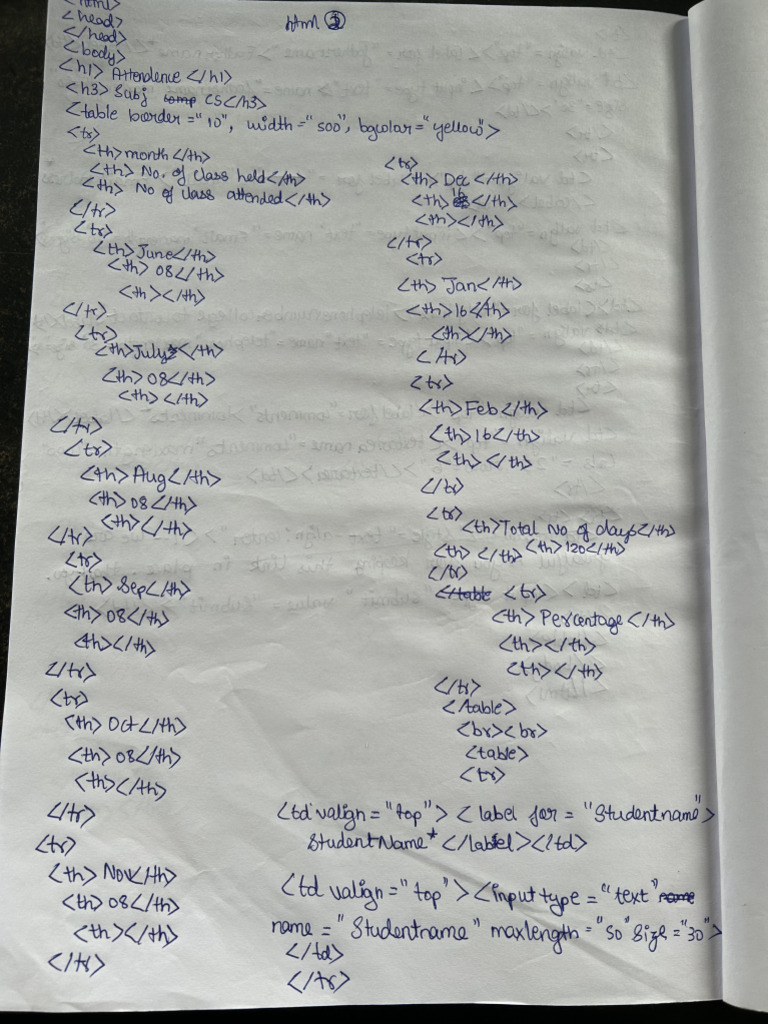 html ②
<html>
<head>
</head>
<body>
<h1> Attendence </h1>
<h3> Subj CS</h3>
<table boarder ="10", width ="500", bgcolar="yellow">
<tr>
<th> month </th>
<th> No. of class held </th>
<th> No of class attended </th>
</tr>
<tr>
<th> June </th>
<th> 08 </th>
<th></th>
</tr>
<tr>
<th> July </th>
<th> 08</th>
<th> </th>
</tr>
<tr>
<th> Aug </th>
<th> 08 </th>
<th></th>
</tr>
<tr>
<th> Sep </th>
<th> 08 </th>
<th></th>
</tr>
<tr>
<th> Oct </th>
<th> 08 </th>
<th></th>
</tr>
<tr>
<th> Nov </th>
<th> 08 </th>
<th></th>
</tr>
<tr>
<th> Dec </th>
<th> 16 </th>
<th></th>
</tr>
<tr>
<th> Jan </th>
<th> 16 </th>
<th></th>
</tr>
<tr>
<th> Feb </th>
<th> 16 </th>
<th> </th>
</tr>
<tr>
<th> Total No of days </th>
<th> </th> <th> 120 </th>
</tr>
</table <tr>
<th> Percentage </th>
<th></th>
<th></th>
</tr>
</table>
<br><br>
<table>
<tr>
<td valign = "top"> < label for = "Studentname">
StudentName* </label></td>
<td valign = "top"> <input type = "text" name
name = "Studentname" maxlength = "50" Size = "30">
</td>
</tr>